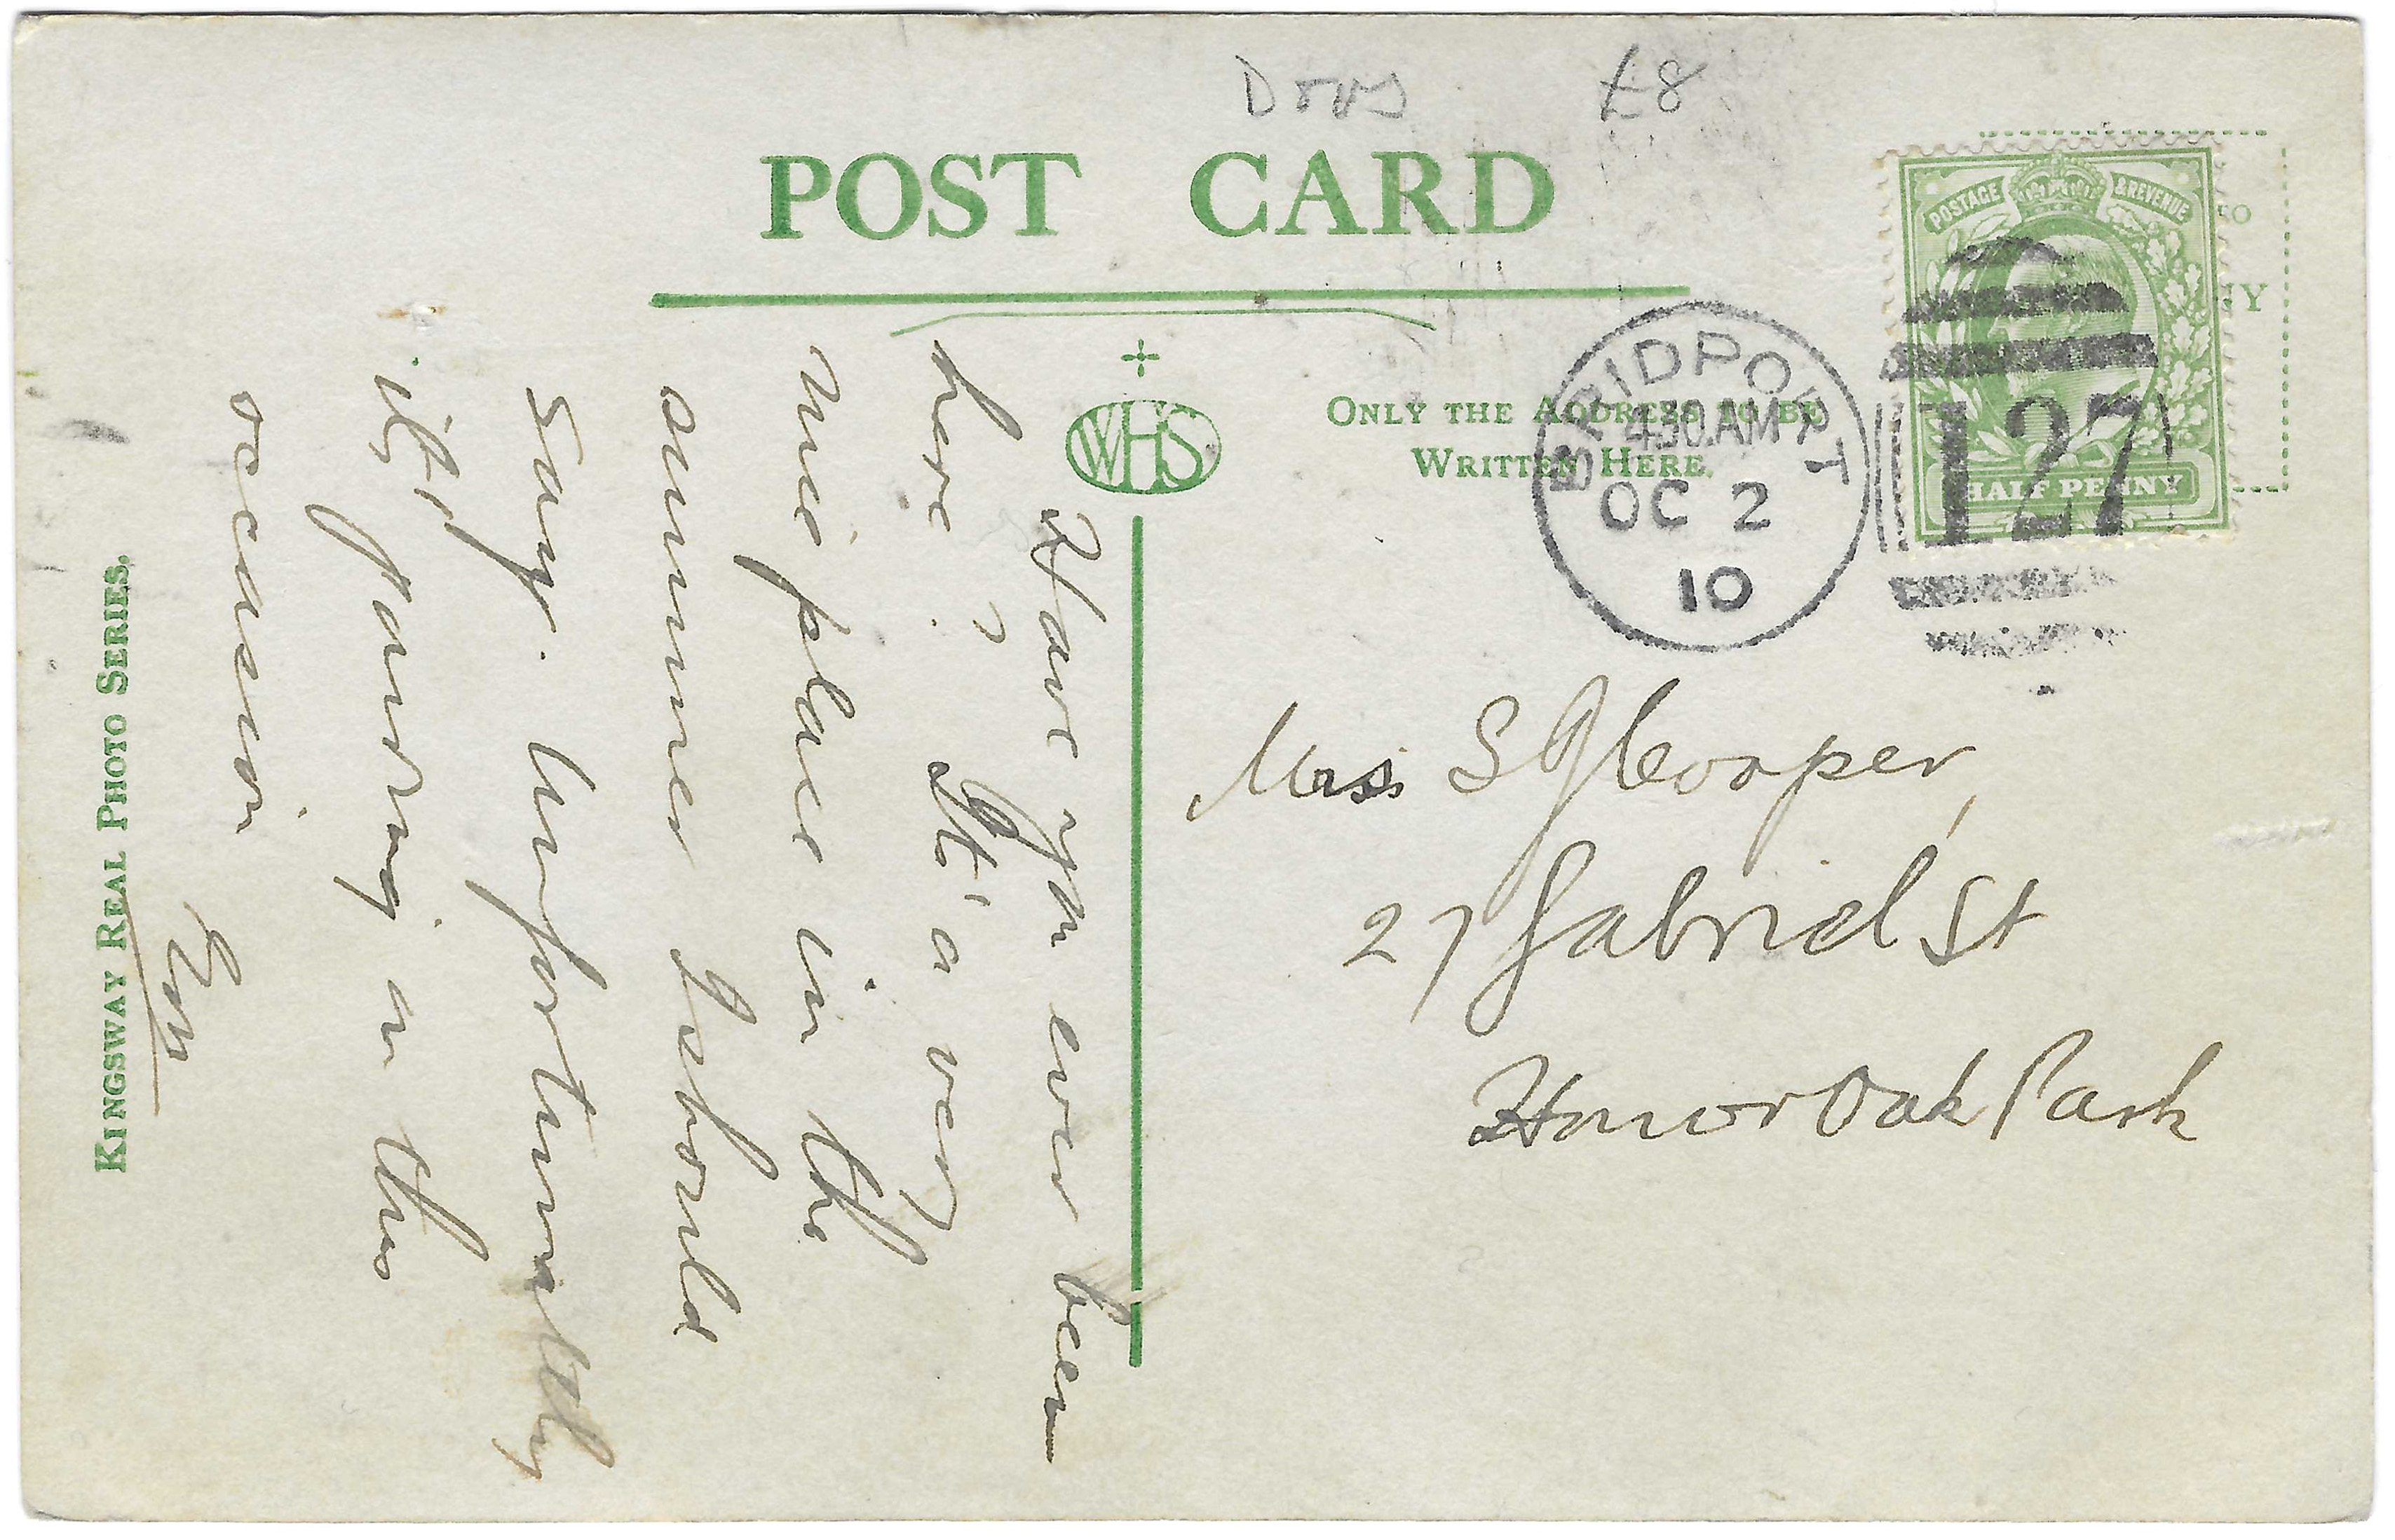 £8
POST CARD
POSTAGE & REVENUE
HALF PENNY
WHS
ONLY THE ADDRESS TO BE
WRITTEN HERE.
BRIDPORT
4.30.AM
OC 2
10
127
Have you ever been
here? It's a very
nice place in the
summer I should
say. Unfortunately
it's pouring on this
occasion
Mrs S J Cooper,
27 Gabriel St
Honor Oak Park
KINGSWAY REAL PHOTO SERIES.